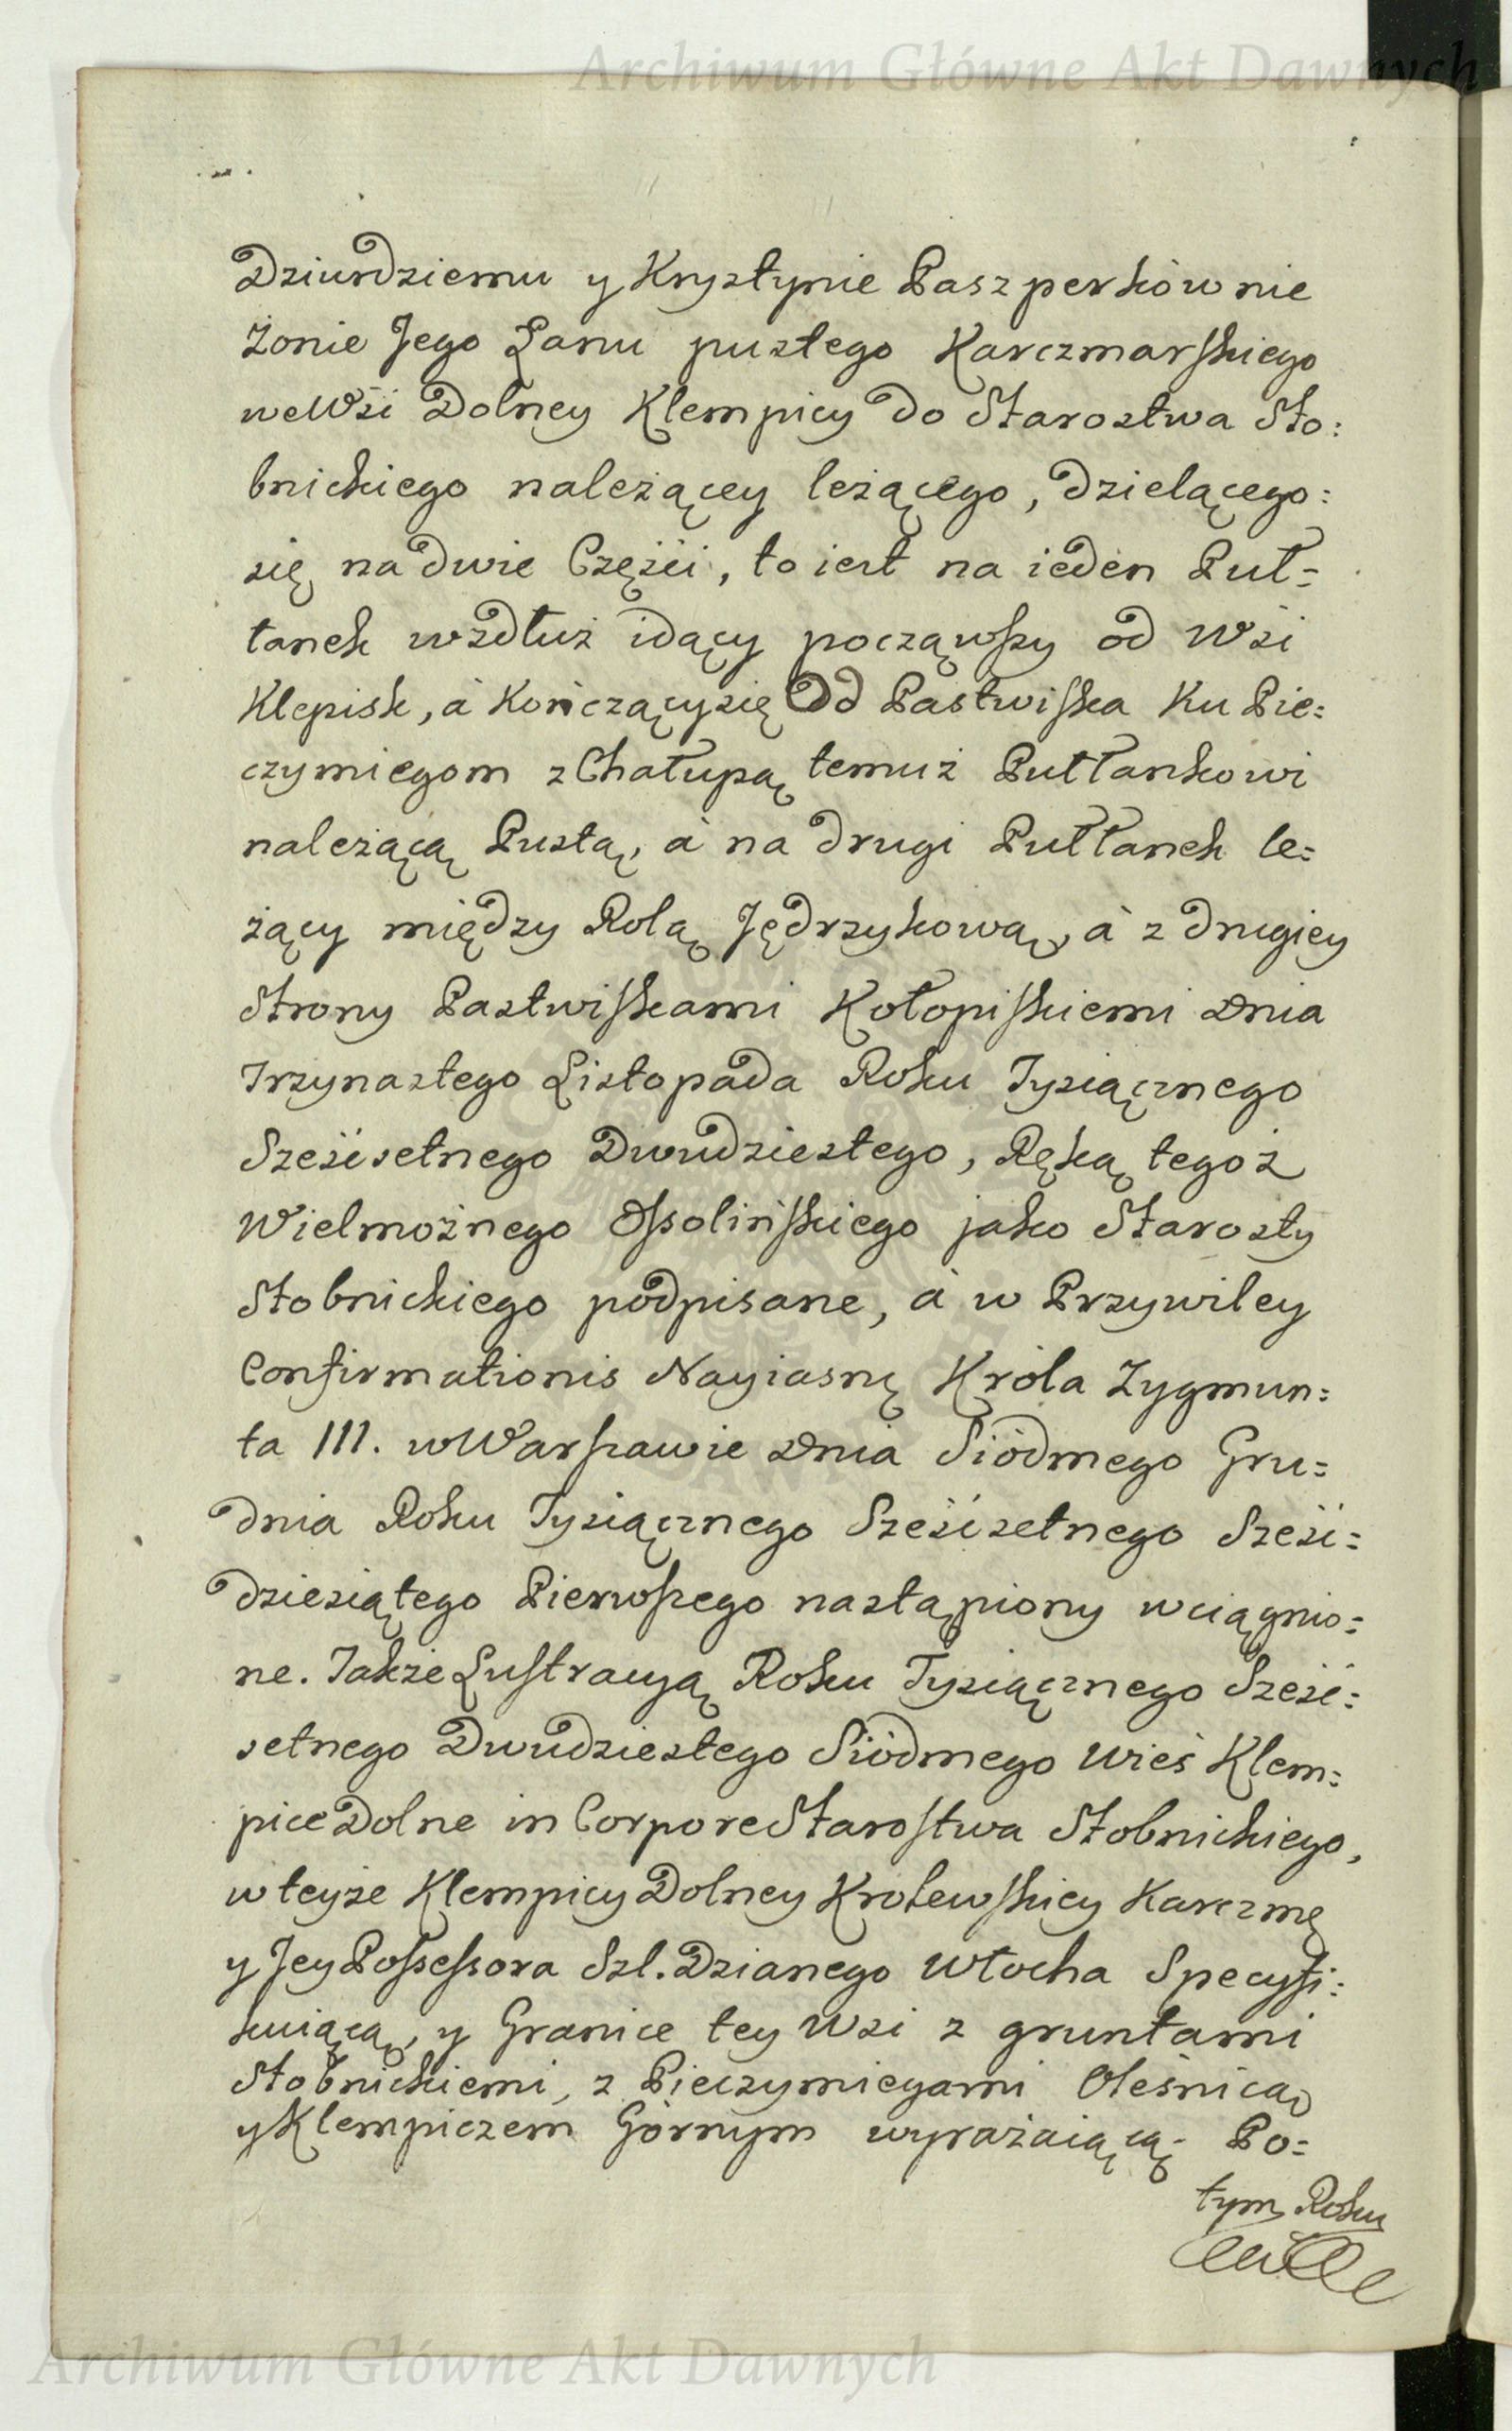 Archiwum Główne Akt Dawnych
Dziurdziemu y Krystynie Paszperkownie
żonie Jego Łanu pustego Karczmarskiego
we Wsi Dolney Klempicy do Starostwa Sto:
bnickiego należącey leżącego, dzielącego:
się na dwie Części, to iest na ieden Puł=
łanek wzdłuż idący począwszy od Wsi
Klepisk, á Kończący się Od Pastwiska Ku Pie=
czymiegom z Chałupą temuż Pułłankowi
należącą Pustą, á na drugi Pułłanek le=
żący między Rolą Jędrzykową, á z drugiey
Strony Pastwiskami Kołopiskiemi Dnia
Trzynastego Listopada Roku Tysiącznego
Sześćsetnego Dwudziestego, Ręką tegoż
Wielmożnego Ossolińskiego jako Starosty
Stobnickiego podpisane, á w Przywiley
Confirmationis Nayiasnę Króla Zygmun=
ta III. w Warszawie Dnia Siódmego Gru=
dnia Roku Tysiącznego Sześćsetnego Sześć=
dziesiątego Pierwszego nastąpiony wciągnio=
ne. Także Lustracyą Roku Tysiącznego Sześć=
setnego Dwudziestego Siódmego Wieś Klem=
pice Dolne in Corpore Starostwa Stobnickiego,
w teyże Klempicy Dolney Krolewskiey Karczmę
y Jey Possessora Szl. Dzianego Włocha Specyfi:
kuiącą, y Granice tey Wsi z gruntami
Stobnickiemi, z Pieczymiegami Oleśnicą
y Klempiczem Górnym wyrażaiącą. Po=
tym Roku
Archiwum Główne Akt Dawnych